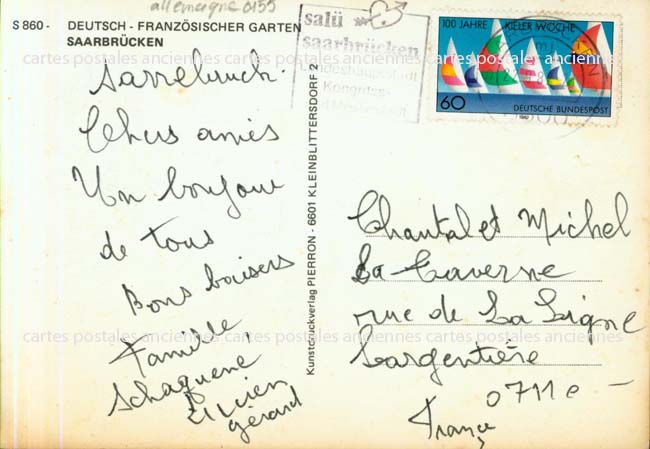 allemagne 0155
S 860 - DEUTSCH - FRANZÖSISCHER GARTEN
SAARBRÜCKEN
salü
saarbrücken
Landeshauptstadt
Kongress-
100 JAHRE KIELER WOCHE
60 DEUTSCHE BUNDESPOST
Sarrebruck.
Chers amies
Un bonjour
de tous
Bons baisers
Famille
Schaquené,
Lucien
gérard
Kunstdruckverlag PIERRON - 6601 KLEINBLITTERSDORF 2
Chantal et Michel
La Caverne
rue de La Ligne
Largentière
07110 -
France
cartes postales anciennes cartes postales anciennes cartes postales anciennes
cartes postales anciennes cartes postales anciennes cartes postales anciennes